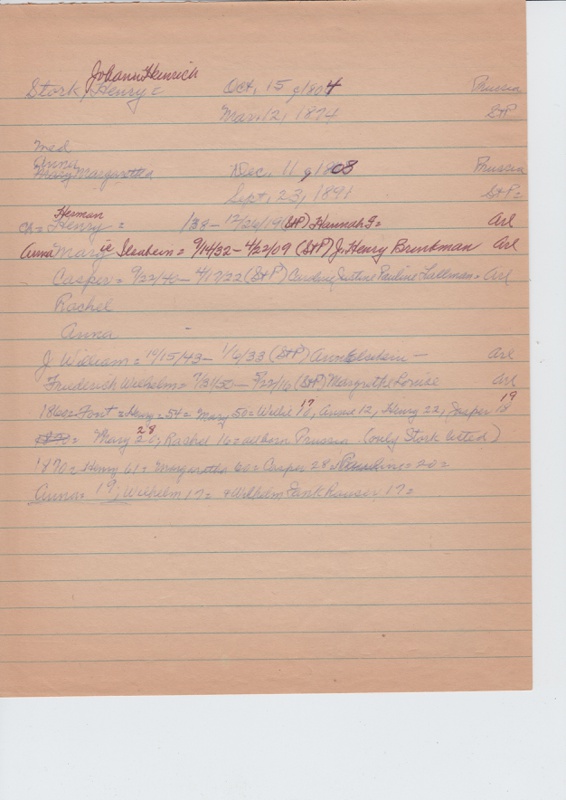 Johann Heinrich
Stork, Henry = Oct. 15, 1804 Prussia
Mar. 12, 1874 StP
Med
Anna
Margaretha Dec. 11, 1808 Prussia
Sept. 23, 1891 StP=
Herman
Ch= Henry = /38- 12/26/19 (StP) Hannah J= Arl
Anna Marie Ilsabein = 9/14/32 - 4/22/09 (StP) J. Henry Brinkman Arl
Casper = 9/22/40 - 4/17/22 (StP) Caroline Justine Pauline = Arl
Rachel
Anna -
J William = 10/15/43 - 1/6/33 (StP) Ann Elsabein - Arl
Friederich Wilhelm = 7/31/50 - (StP) Margrethe Louise Arl
19
1860= Font = Henry = 54= Mary 50= Will 10, Anna 12, Henry 22, Casper
28
= Mary, Rachel 16= all born Prussia (only Stork listed)
1870= Henry 61= Margaretha 60= Casper 28 Pauline= 20=
Anna= 19, Wilhelm 17= + Wilhelm Fankhouser, 17=